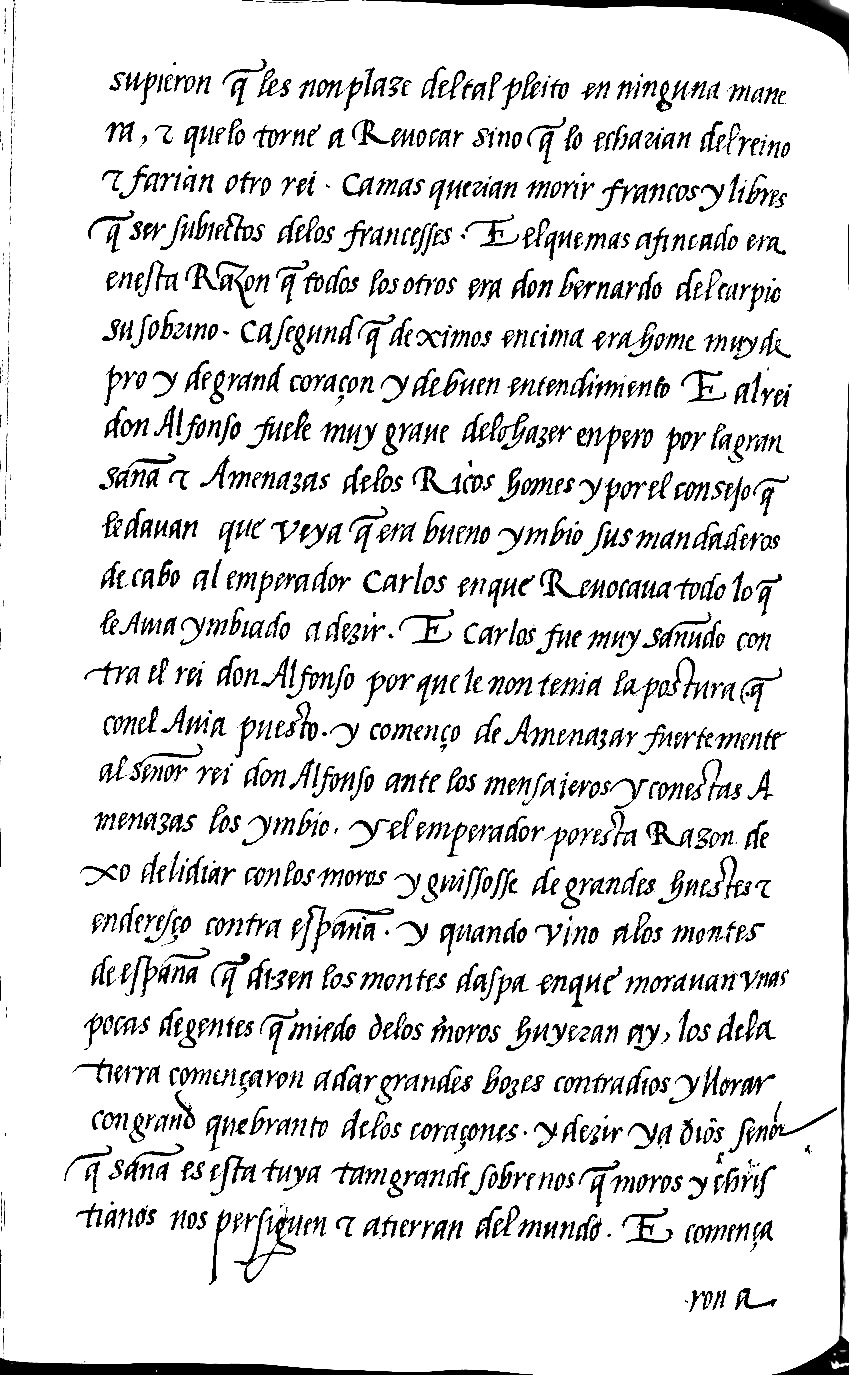 supieron q̃ les non plaze del tal pleito en ninguna mane
ra, τ que lo torne a Reuocar sino q̃ lo echarian del reino
τ farian otro rei. Ca mas querian morir francos y libres
q̃ ser subiectos delos francesses. E el que mas afincado era
en esta Razon q̃ todos los otros era don bernardo del carpio
su sobrino. Ca segund q̃ deximos encima era home muy de
pro y de grand coraçon y de buen entendimiento E al rei
don Alfonso fuele muy graue delo hazer enpero por la gran
sana̅ τ Amenazas delos Ricos homes y por el consejo q̃
le dauan que veya q̃ era bueno ymbio sus mandaderos
de cabo al emperador Carlos en que Reuocaua todo lo q̃
le Auia ymbiado a dezir. E Carlos fue muy sanu̅do con
tra el rei don Alfonso por que le non tenia la postura q̃
conel Auia puesto. y començo de Amenazar fuertemente
al seno̅r rei don Alfonso ante los mensajeros y con estas A
menazas los ymbio. y el emperador por esta Razon de
xo de lidiar con los moros y guissosse de grandes huestes τ
enderesço contra espana̅. y quando vino alos montes
de espana̅ q̃ dizen los montes daspa en que morauan vnas
pocas de gentes q̃ miedo delos moros huyeran ay, los dela
tierra començaron a dar grandes bozes contra dios y llorar
con grand quebranto delos coraçones. y dezir ya diôs señor
q̃ sana̅ es esta tuya tam grande sobre nos q̃ moros y chris
tianos nos persiguen τ atierran del mundo. E comença
ron a